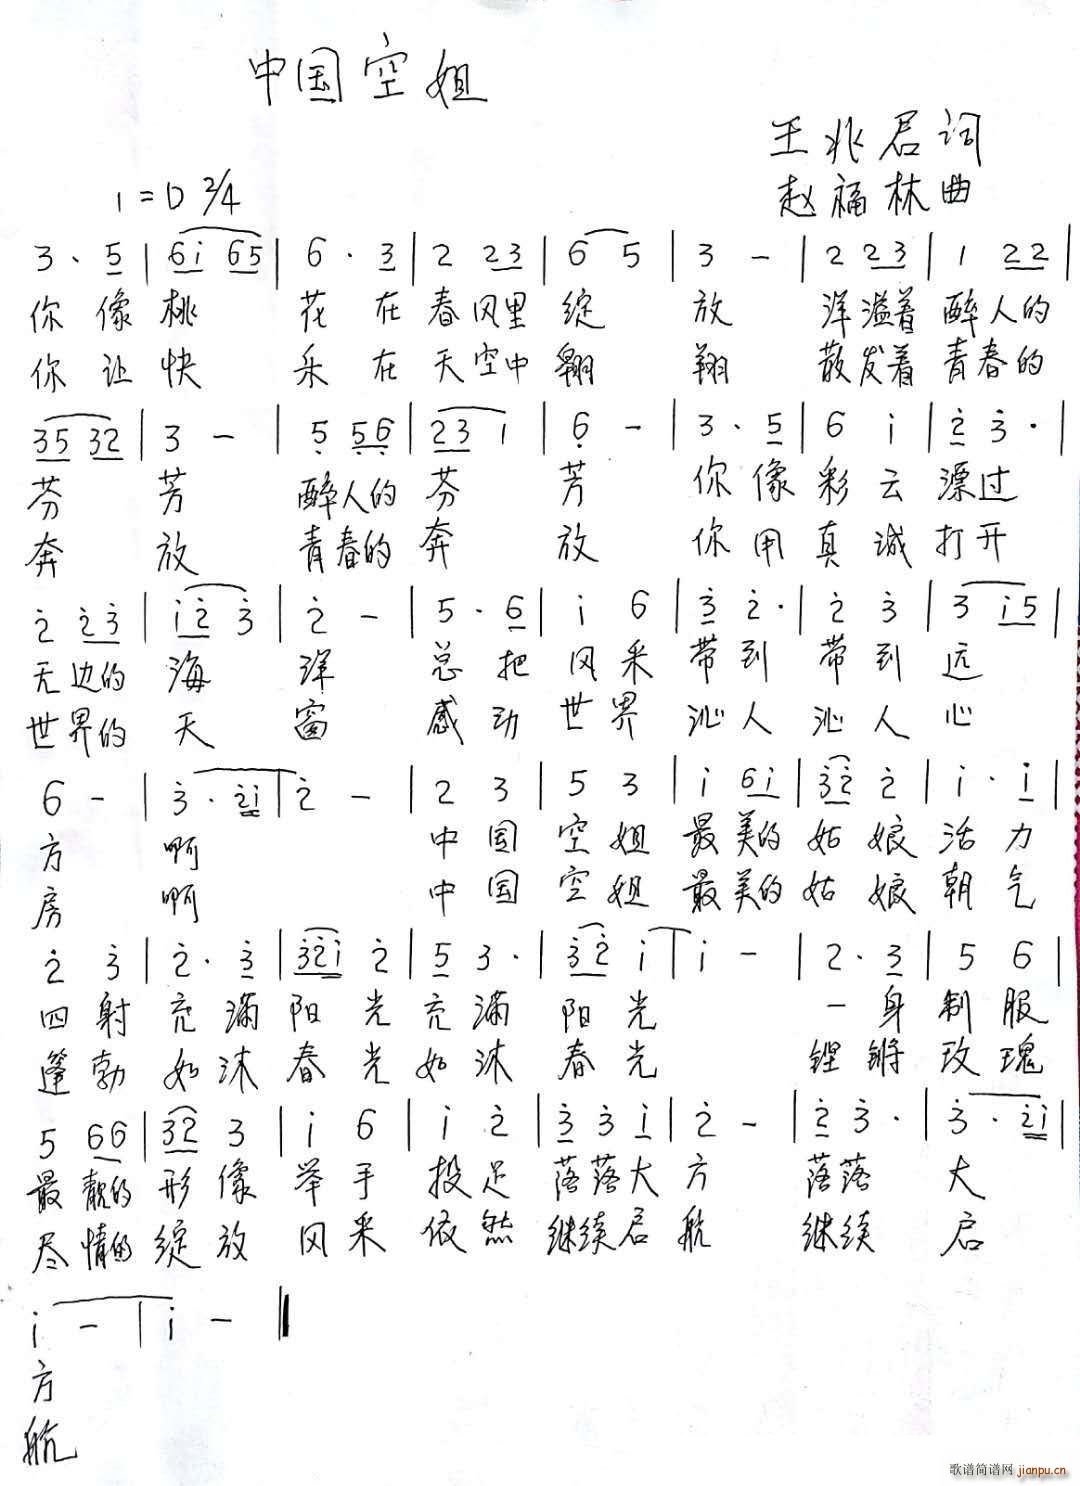 中国空姐
王兆君词
1=D 2/4
赵福林曲
3· 5 | 6i 65 | 6· 3 | 2 23 | 6 5 | 3 - | 2 23 | 1 22 |
你像桃 花在春风里绽 放 洋溢着醉人的
你让快 乐在天空中翱 翔 散发着青春的
35 32 | 3 - | 5 56 | 23 1 | 6 - | 3· 5 | 6 i | 2 3· |
芬 芳 醉人的芬 芳 你像彩云漂过
奔 放 青春的奔 放 你用真诚打开
2 23 | i2 3 | 2 - | 5· 6 | i 6 | 3 2· | 2 3 | 3 i5 |
无边的海 洋 总把风采带到带到远
世界的天 窗 感动世界沁人沁人心
6 - | 3· 2i | 2 - | 2 3 | 5 3 | i 6i | 32 2 | i· i |
方 啊 中国空姐最美的姑娘活力
房 啊 中国空姐最美的姑娘朝气
2 3 | 2· 3 | 32i 2 | 5 3· | 32 i | i - | 2· 3 | 5 6 |
四射充满阳光充满阳光 一身制服
蓬勃如沐春光如沐春光 铿锵玫瑰
5 66 | 32 3 | i 6 | i 2 | 3 3 i | 2 - | 2 3· | 3· 2i |
最靓的形像举手投足落落大方 落落大
尽情的绽放风采依然继续启航 继续启
i - | i - ‖
方
航
歌谱简谱网 jianpu.cn